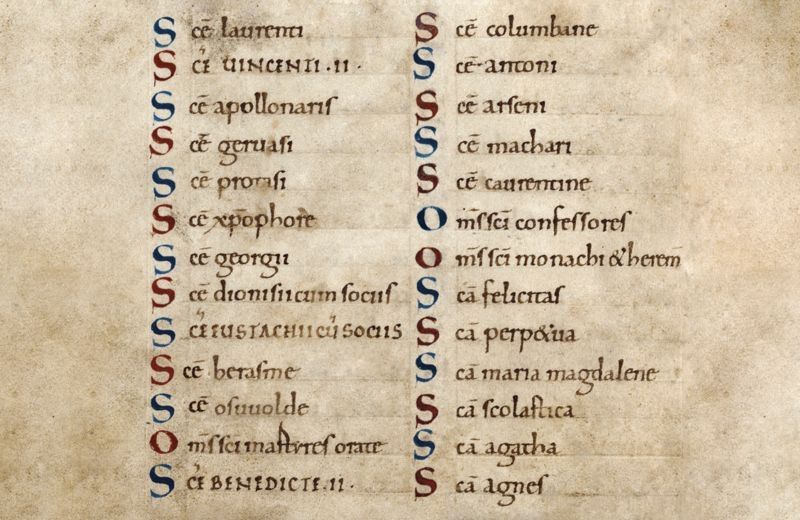 Scē laurenti
Scē UINCENTI · II ·
Scē apollonaris
Scē geruasi
Scē protasi
Scē xpophore
Scē georgii
Scē dionisii cum sociis
Scē EUSTACHII CŪ SOCIIS
Scē herasme
Scē osuuolde
Om̄s sci martyres orate
Scē BENEDICTE · II ·
Scē columbane
Scē antoni
Scē arseni
Scē machari
Scē caurentine
Om̄s scī confessores
Om̄s scī monachi & herem̄
Scā felicitas
Scā perp&ua
Scā maria magdalene
Scā scolastica
Scā agatha
Scā agnes